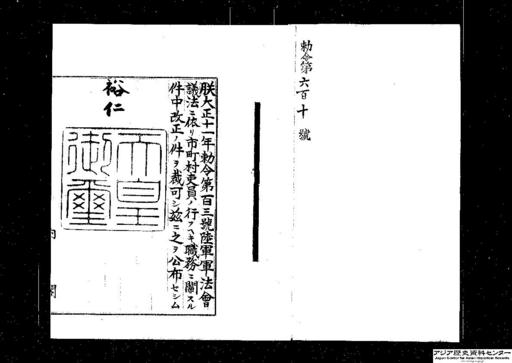 勅令第六百十號
朕大正十一年勅令第百三號陸軍軍法會
議法ニ依リ市町村吏員ノ行フヘキ職務ニ關スル
件中改正ノ件ヲ裁可シ茲ニ之ヲ公布セシム
裕仁
天皇
御璽
内閣
アジア歴史資料センター
Japan Center for Asian Historical Records